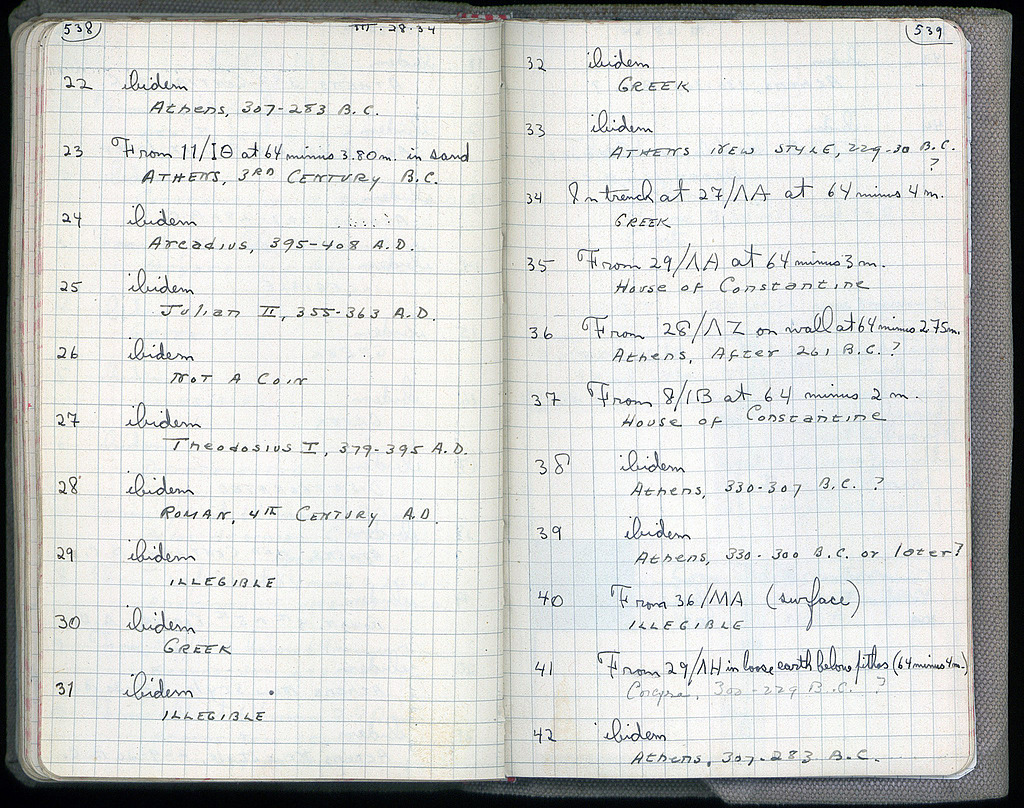 538
III-28-34
22 ibidem
Athens, 307-283 B.C.
23 From 11/ΙΘ at 64 minus 3.80m. in sand
ATHENS, 3RD CENTURY B.C.
24 ibidem
Arcadius, 395-408 A.D.
25 ibidem
Julian II, 355-363 A.D.
26 ibidem
NOT A COIN
27 ibidem
Theodosius I, 379-395 A.D.
28 ibidem
ROMAN, 4TH CENTURY A.D.
29 ibidem
ILLEGIBLE
30 ibidem
GREEK
31 ibidem
ILLEGIBLE
539
32 ibidem
GREEK
33 ibidem
ATHENS NEW STYLE, 229-30 B.C.
?
34 In trench at 27/ΛΑ at 64 minus 4 m.
GREEK
35 From 29/ΛΑ at 64 minus 3 m.
House of Constantine
36 From 28/ΛΖ on wall at 64 minus 2.75m.
Athens, After 261 B.C.?
37 From 8/ΙΒ at 64 minus 2 m.
House of Constantine
38 ibidem
Athens, 330-307 B.C. ?
39 ibidem
Athens, 330-300 B.C. or later?
40 From 36/ΜΑ (surface)
ILLEGIBLE
41 From 29/ΛΗ in loose earth below pithos (64 minus 4m.)
Corcyra, 300-229 B.C. ?
42 ibidem
Athens, 307-283 B.C.